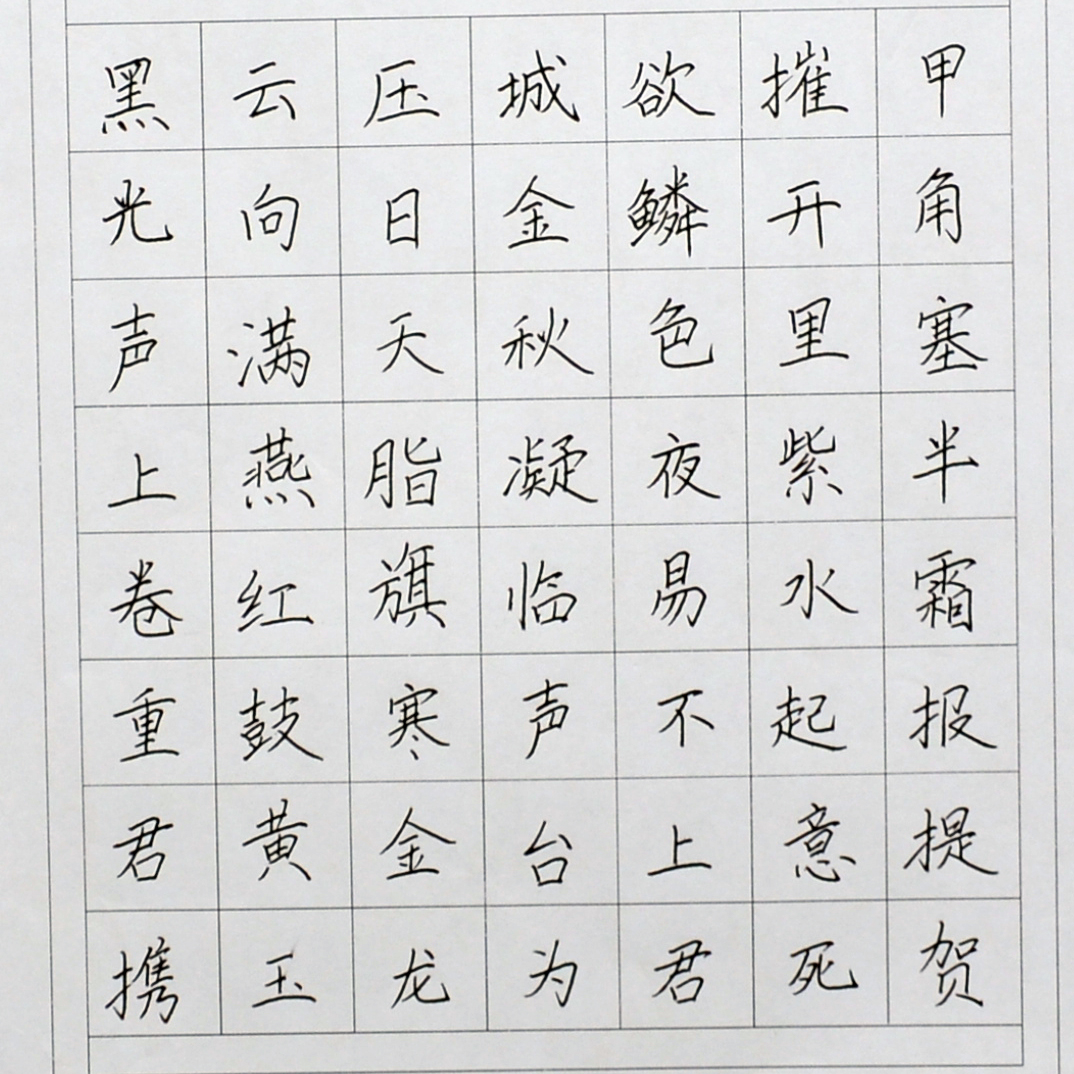 黑云压城欲摧甲
光向日金鳞开角
声满天秋色里塞
上燕脂凝夜紫半
卷红旗临易水霜
重鼓寒声不起报
君黄金台上意提
携玉龙为君死贺